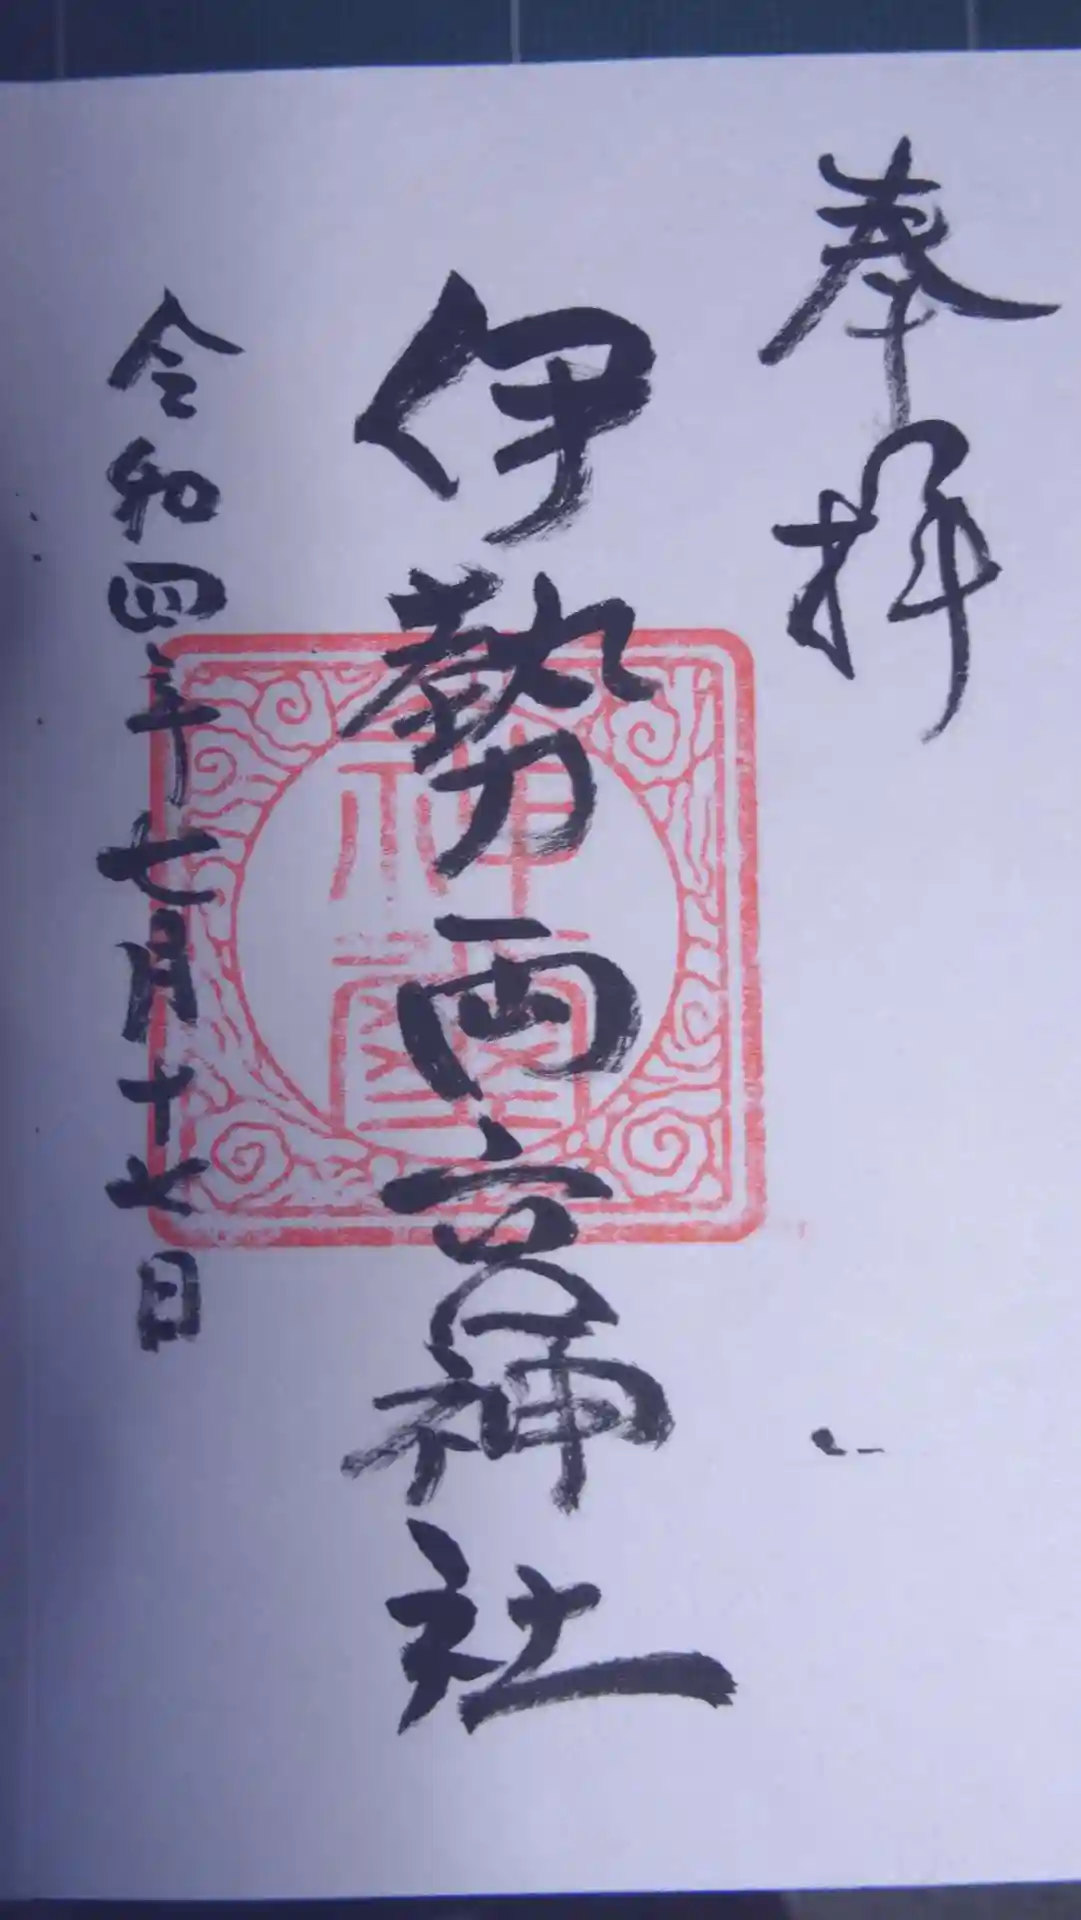 奉拝
伊勢両宮神社
令和四年七月十七日
神璽